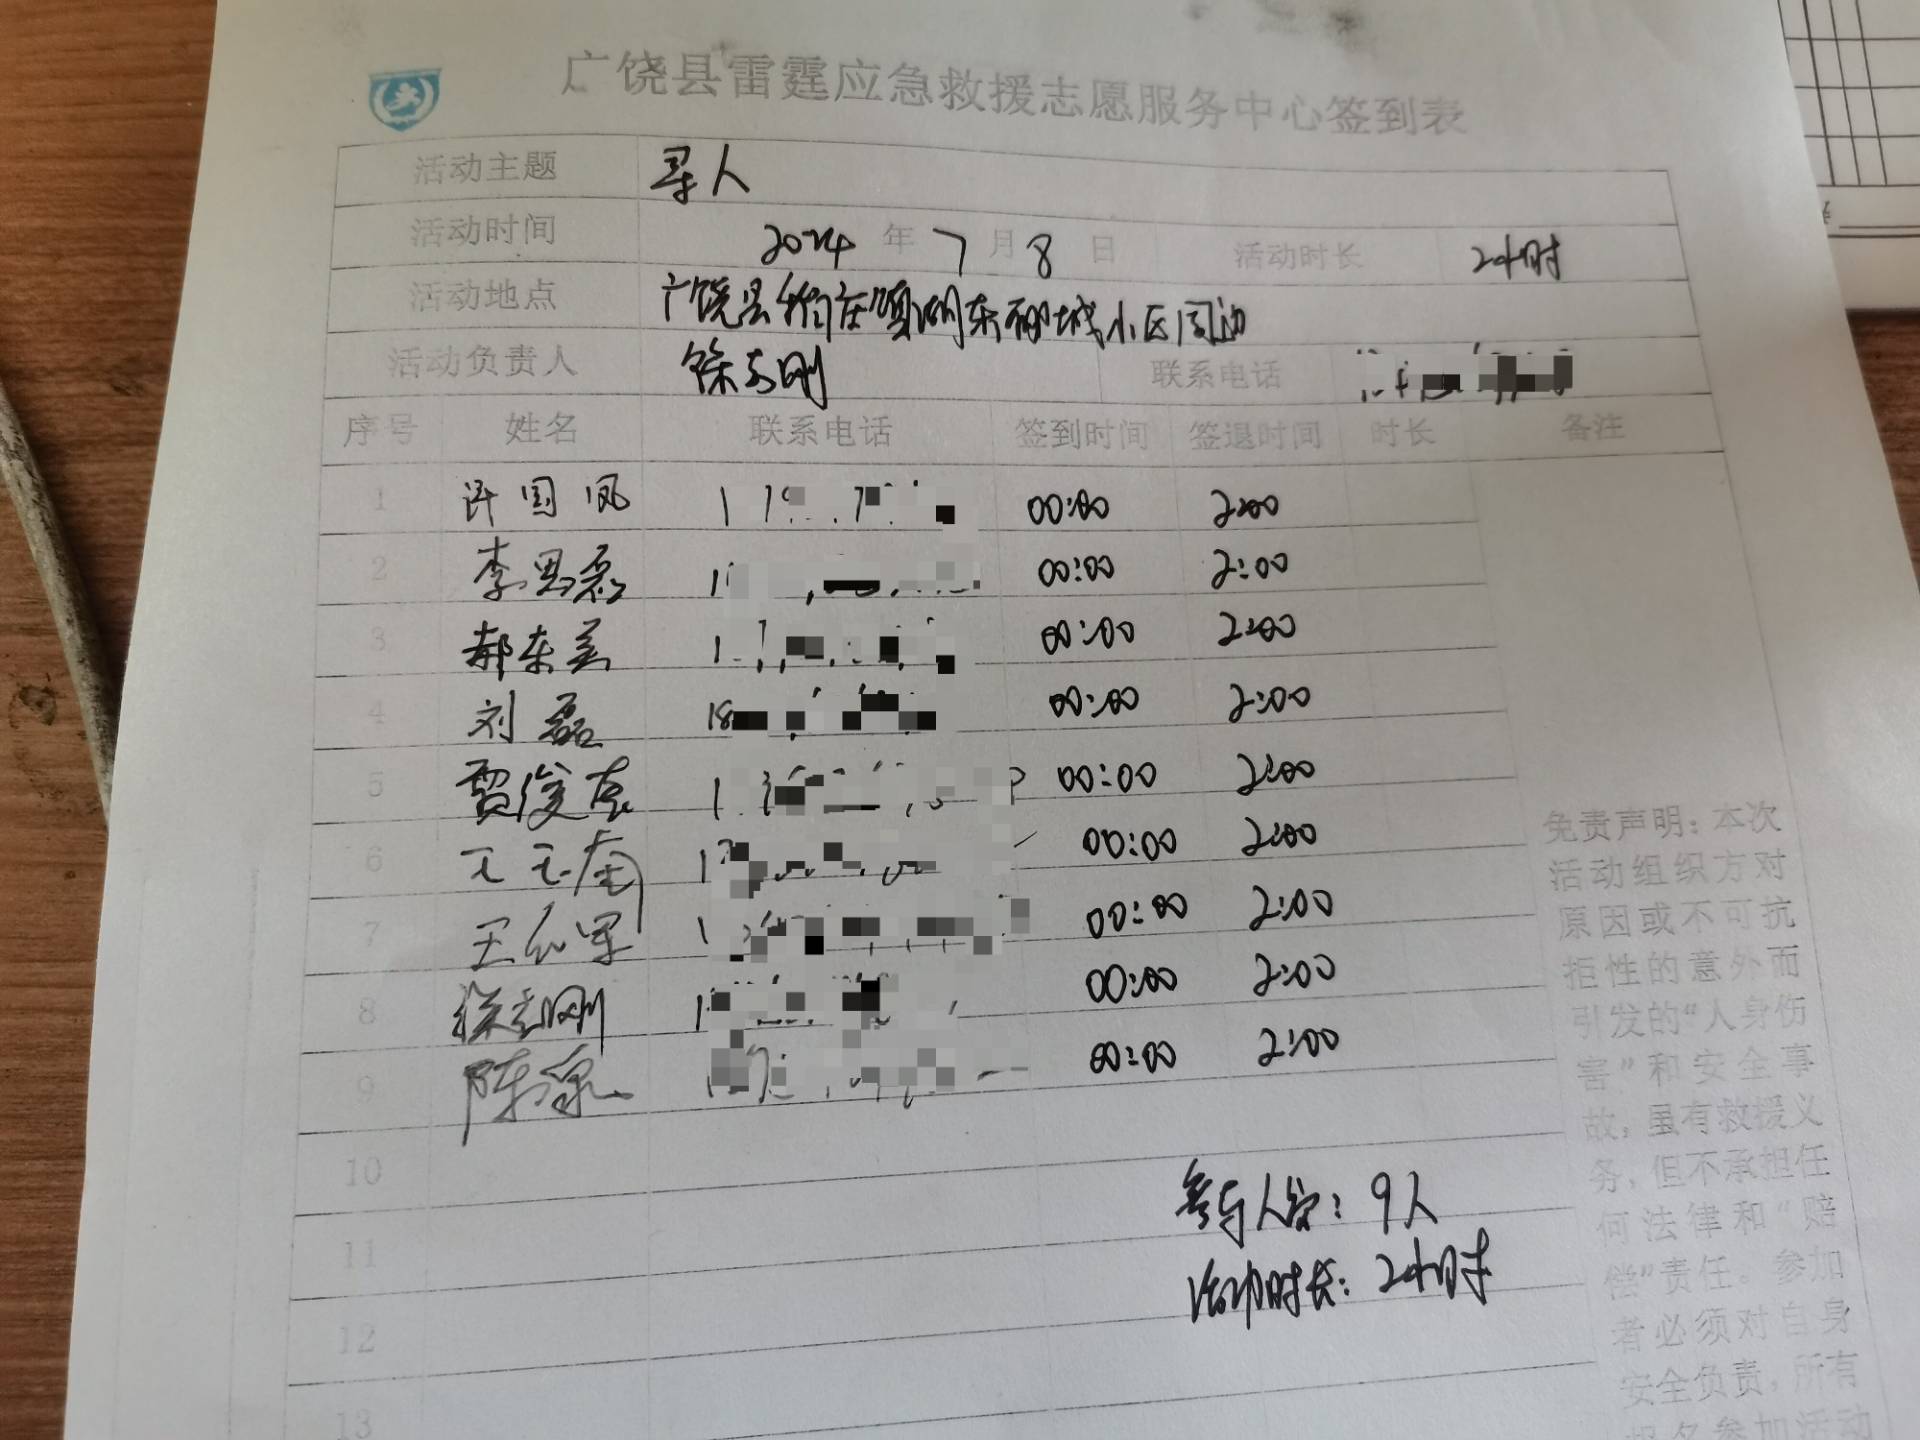 广饶县雷霆应急救援志愿服务中心签到表
活动主题 寻人
活动时间 2024 年 7 月 8 日 活动时长 2小时
活动地点 广饶县稻庄镇湖东丽城小区周边
活动负责人 徐志刚 联系电话
序号 姓名 联系电话 签到时间 签退时间 时长 备注
1 许国凤 1 00:00 2:00
2 李思磊 1 00:00 2:00
3 郝东美 1 00:00 2:00
4 刘磊 18 00:00 2:00
5 贾俊 1 00:00 2:00
6 1 00:00 2:00
7 王 军 1 00:00 2:00
8 徐志刚 1 00:00 2:00
9 陈 00:00 2:00
10
11
12
13
参与人数：9人
活动时长：2小时
免责声明：本次
活动组织方对
原因或不可抗
拒性的意外而
引发的“人身伤
害”和安全事
故，虽有救援义
务，但不承担任
何法律和“赔
偿”责任。参加
者必须对自身
安全负责，所有
报名参加活动